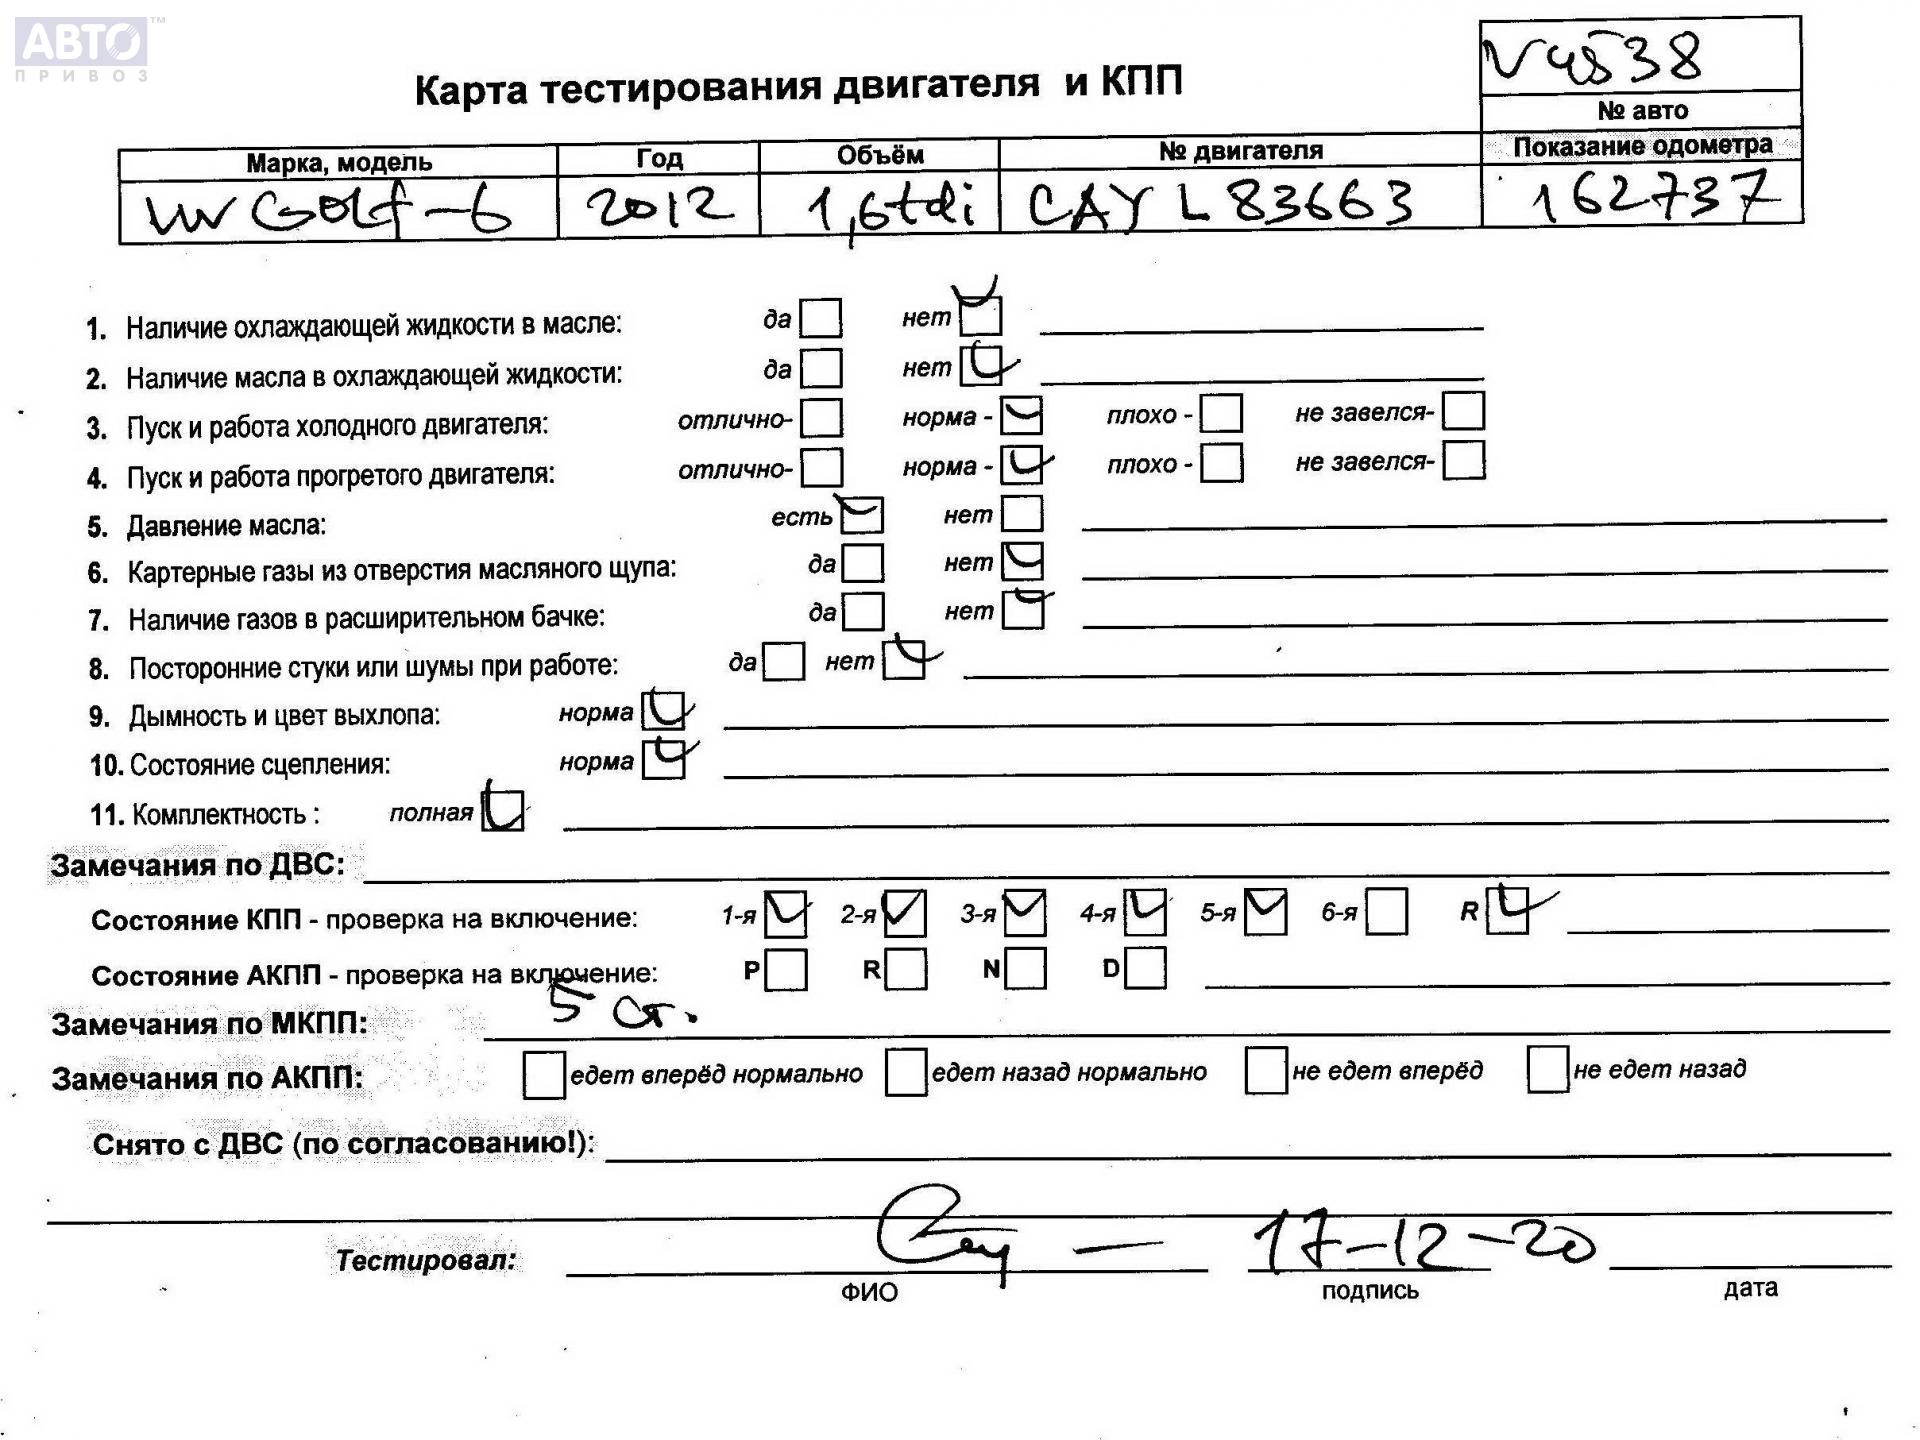 АВТО ™
ПРИВОЗ
V4538
Карта тестирования двигателя и КПП
№ авто
Марка, модель Год Объём № двигателя Показание одометра
vw Golf-6 2012 1,6tdi CAY L 83663 162737
1. Наличие охлаждающей жидкости в масле: да нет
2. Наличие масла в охлаждающей жидкости: да нет
3. Пуск и работа холодного двигателя: отлично- норма - плохо - не завелся-
4. Пуск и работа прогретого двигателя: отлично- норма - плохо - не завелся-
5. Давление масла: есть нет
6. Картерные газы из отверстия масляного щупа: да нет
7. Наличие газов в расширительном бачке: да нет
8. Посторонние стуки или шумы при работе: да нет
9. Дымность и цвет выхлопа: норма
10. Состояние сцепления: норма
11. Комплектность : полная
Замечания по ДВС:
Состояние КПП - проверка на включение: 1-я 2-я 3-я 4-я 5-я 6-я R
Состояние АКПП - проверка на включение: P R N D
Замечания по МКПП: 5 ст.
Замечания по АКПП: едет вперёд нормально едет назад нормально не едет вперёд не едет назад
Снято с ДВС (по согласованию!):
Тестировал: 17-12-20
ФИО подпись дата